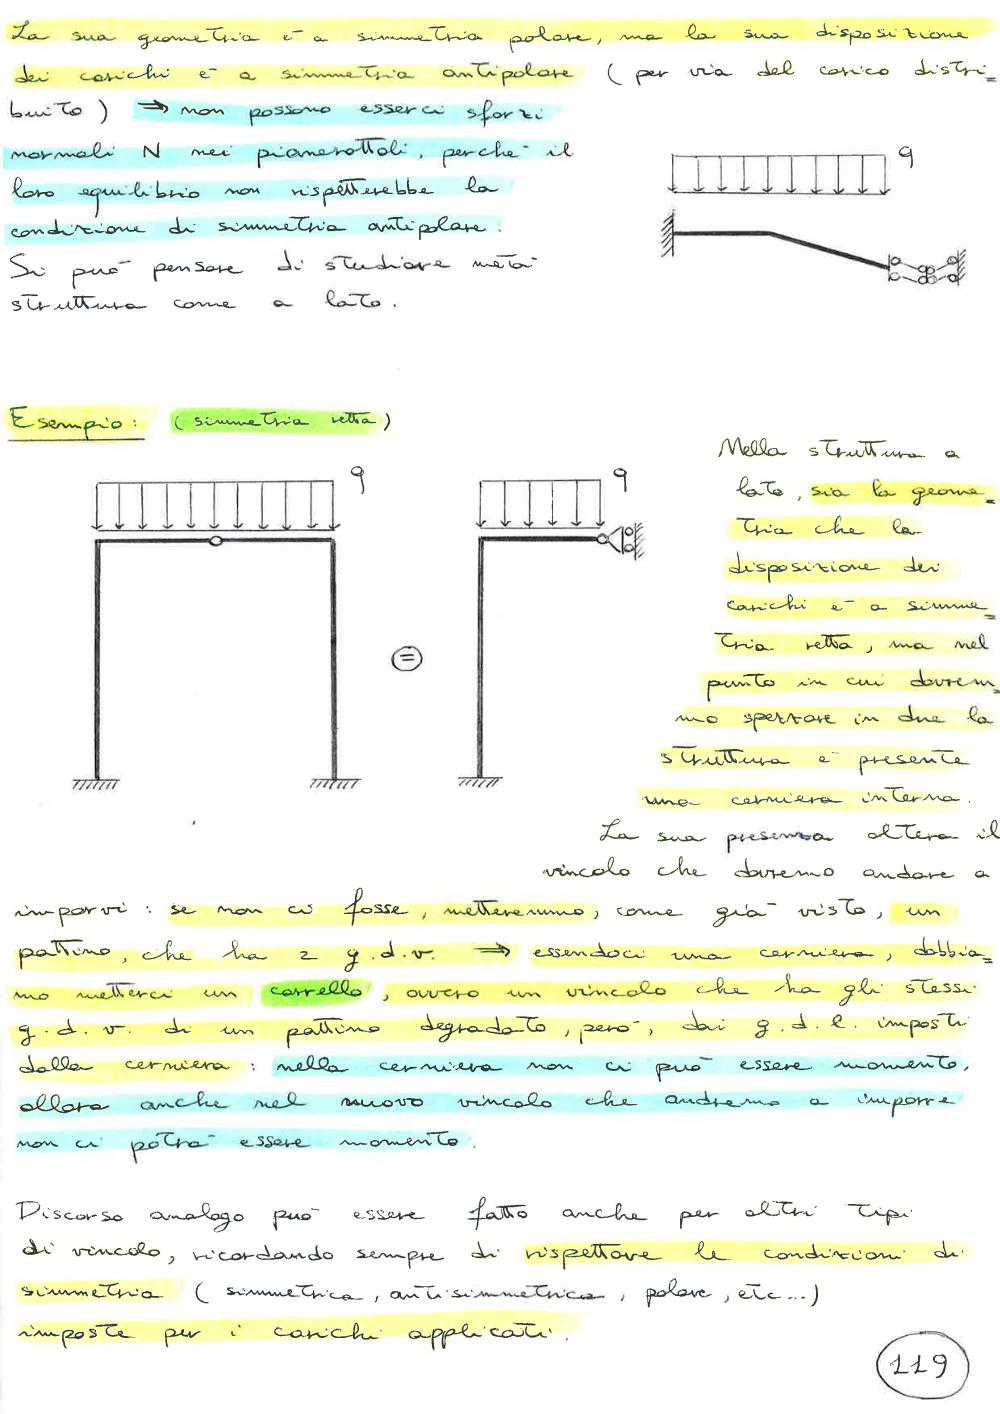 La sua geometria è a simmetria polare, ma la sua disposizione
dei carichi è a simmetria antipolare (per via del carico distri=
buito) ⇒ non possono esserci sforzi
normali N nei pianerottoli, perchè il
loro equilibrio non rispetterebbe la
condizione di simmetria antipolare.
Si può pensare di studiare metà
struttura come a lato.
q
Esempio: (simmetria retta)
q
q
=
Nella struttura a
lato, sia la geome=
tria che la
disposizione dei
carichi è a simme=
tria retta, ma nel
punto in cui dovrem=
mo spezzare in due la
struttura è presente
una cerniera interna.
La sua presenza altera il
vincolo che dovremo andare a
imporvi: se non ci fosse, metteremmo, come già visto, un
pattino, che ha 2 g.d.v. ⇒ essendoci una cerniera, dobbia=
mo metterci un carrello, ovvero un vincolo che ha gli stessi
g.d.v. di un pattino degradato, però, dai g.d.l. imposti
dalla cerniera: nella cerniera non ci può essere momento,
allora anche nel nuovo vincolo che andremo a imporre
non ci potrà essere momento.
Discorso analogo può essere fatto anche per altri tipi
di vincolo, ricordando sempre di rispettare le condizioni di
simmetria (simmetrica, antisimmetrica, polare, etc...)
imposte per i carichi applicati.
119